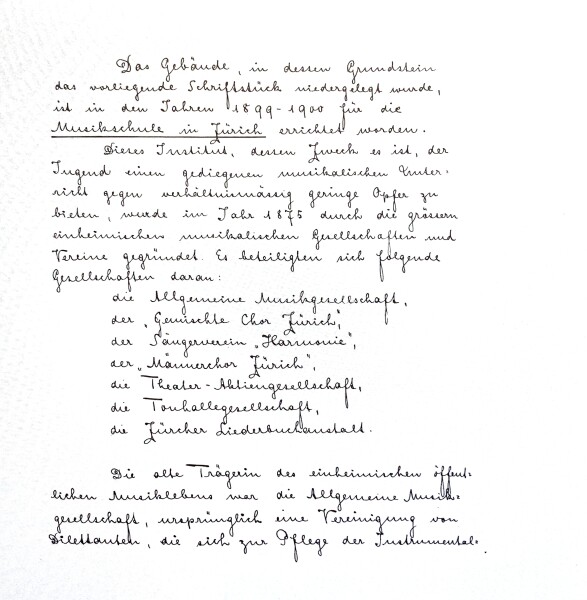 Das Gebäude, in dessen Grundstein
das vorliegende Schriftstück niedergelegt wurde,
ist in den Jahren 1899-1900 für die
Musikschule in Zürich errichtet worden.
Dieses Institut, dessen Zweck es ist, der
Jugend einen gediegenen musikalischen Unter-
richt gegen verhältnismässig geringe Opfer zu
bieten, wurde im Jahr 1875 durch die grössern
einheimischen musikalischen Gesellschaften und
Vereine gegründet. Es beteiligten sich folgende
Gesellschaften daran:
die Allgemeine Musikgesellschaft,
der „Gemischte Chor Zürich",
der Sängerverein „Harmonie",
der „Männerchor Zürich",
die Theater-Aktiengesellschaft,
die Tonhallegesellschaft,
die Zürcher Liederbuchanstalt.
Die alte Trägerin des einheimischen öffent-
lichen Musiklebens war die Allgemeine Musik-
gesellschaft, ursprünglich eine Vereinigung von
Dilettanten, die sich zur Pflege der Instrumental-